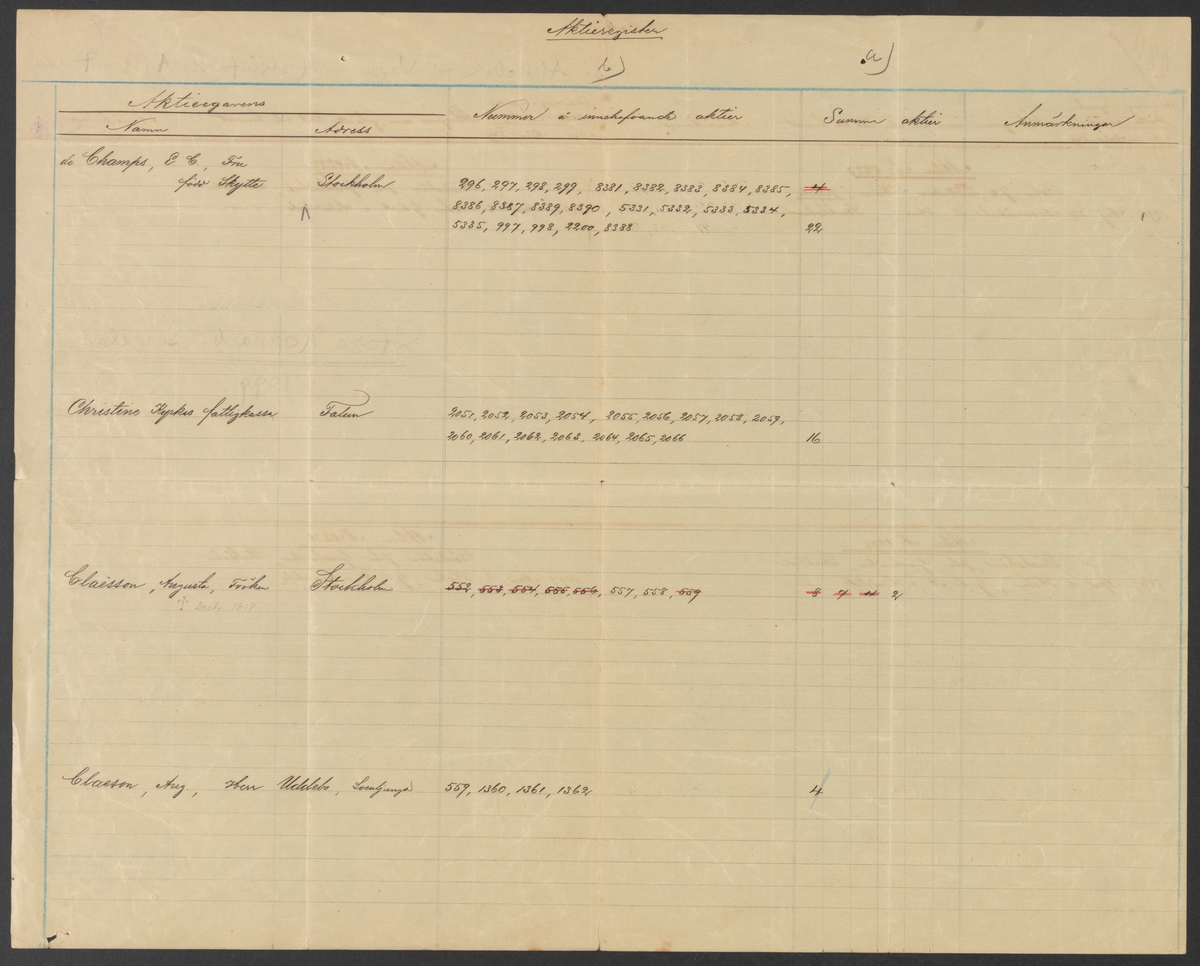 Aktieregister
b) a)
Aktieegarens
Namn Adress Nummer å innehafvande aktier Summa aktier Anmärkningar
de Champs, E. C., Fru
född Skytte Stockholm 296, 297, 298, 299, 8381, 8382, 8383, 8384, 8385, 4
8386, 8387, 8389, 8390, 5331, 5332, 5333, 5334,
5335, 997, 998, 2200, 8388 22
Christine Kypkes fattigkassa Falun 2051, 2052, 2053, 2054, 2055, 2056, 2057, 2058, 2059,
2060, 2061, 2062, 2063, 2064, 2065, 2066 16
Claësson, Augusta, Fröken Stockholm 552, 553, 554, 555, 556, 557, 558, 559 8 7 4 2
Claeson, Aug., Herr Uddebo, 559, 1360, 1361, 1362 4